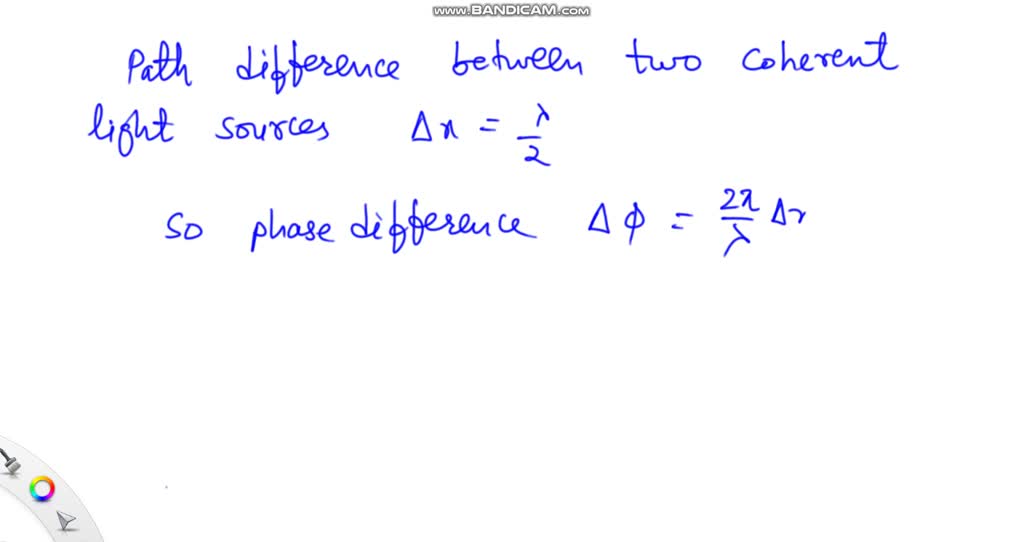 www.BANDICAM.com
Path difference between two coherent
light sources Δx = λ/2
So phase difference Δϕ = 2π/λ Δx